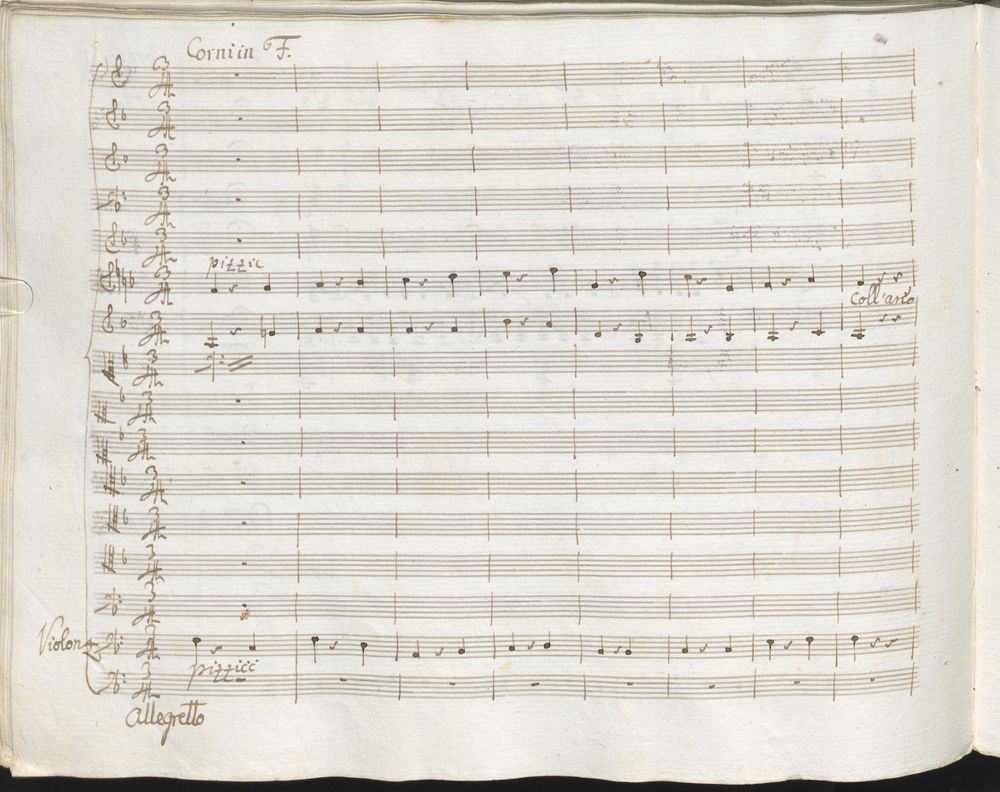 Corni in F.
pizzic
Coll'arco
Violon
pizzicc
Allegretto